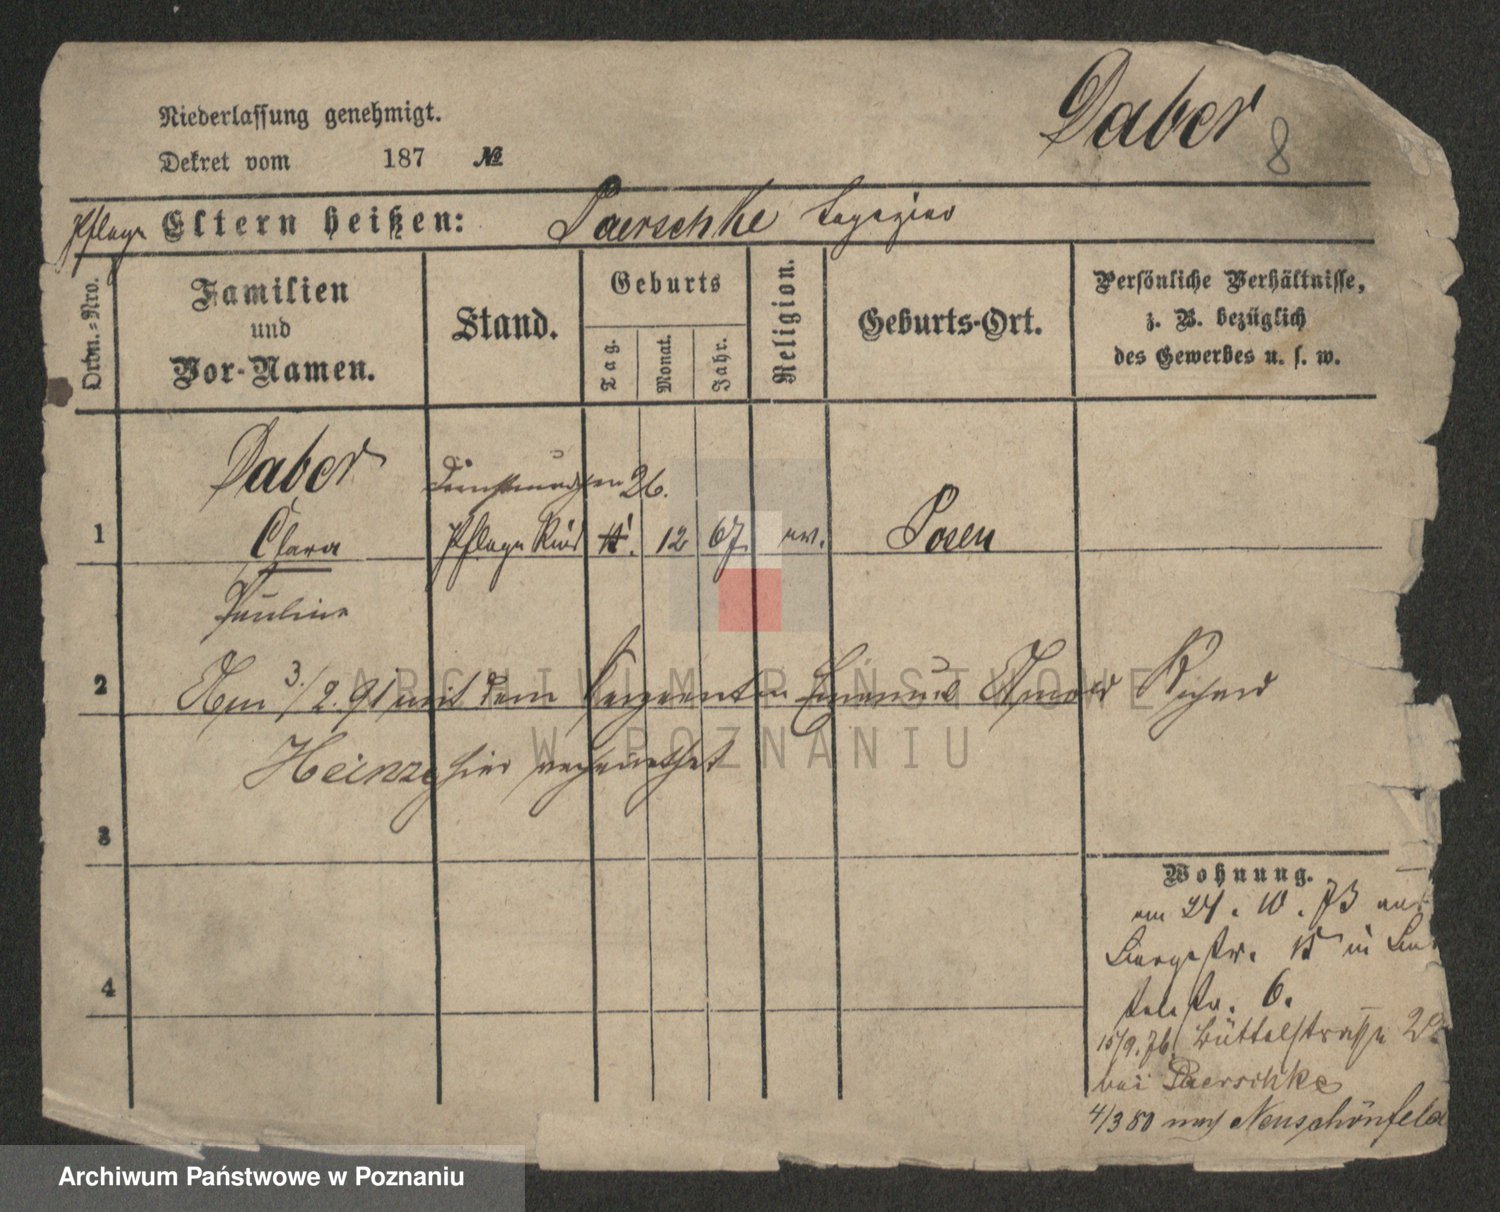 Niederlassung genehmigt.
Daber
8
Dekret vom 187 №
Pflege Eltern heißen: Paerschke
Ordn.-Nro.
Familien
und
Vor-Namen.
Stand.
Geburts
Tag.
Monat.
Jahr.
Religion.
Geburts-Ort.
Persönliche Verhältnisse,
z. B. bezüglich
des Gewerbes u. s. w.
Daber
Dienstmädchen 26.
1 Clara Pflege Kind 12 67 ev. Posen
Pauline
2 Am 3/2. 91 mit dem Sergeanten Emanuel Arnold Richard
Heinze hier verheirathet
3
Wohnung.
am 24. 10. 73 aus
Bergstr. 15 in
4
6.
15/9. 76. Büttelstraße
bei Paerschke
4/3 80 nach Neuschönfeld
ARCHIWUM PAŃSTWOWE
W POZNANIU
Archiwum Państwowe w Poznaniu